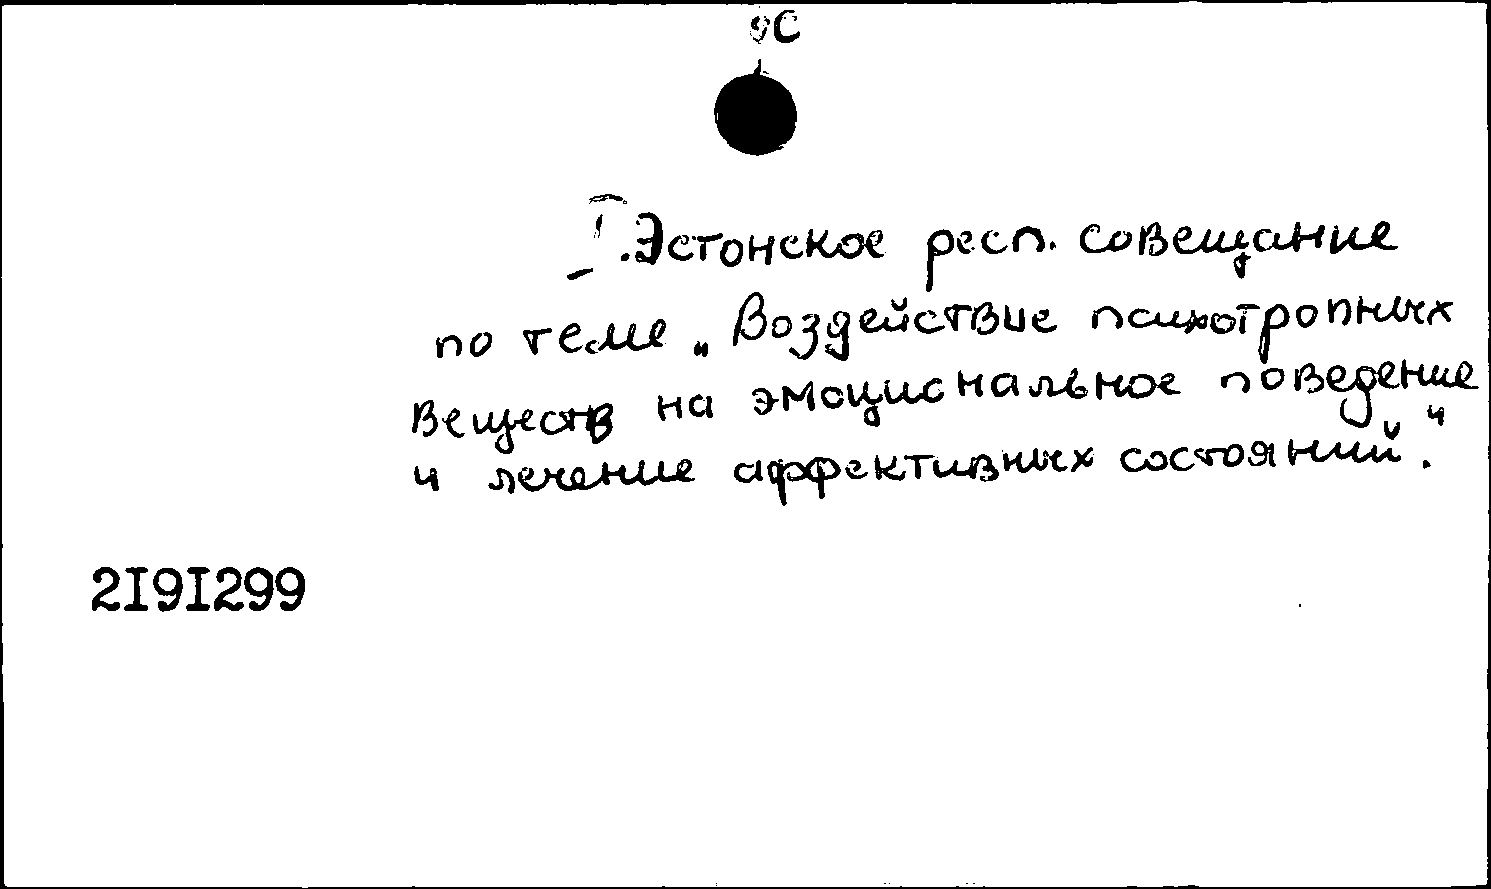 I. Эстонское респ. совещание
по теме „Воздействие психотропных
веществ на эмоциональное поведение
и лечение аффективных состояний."
2I9I299